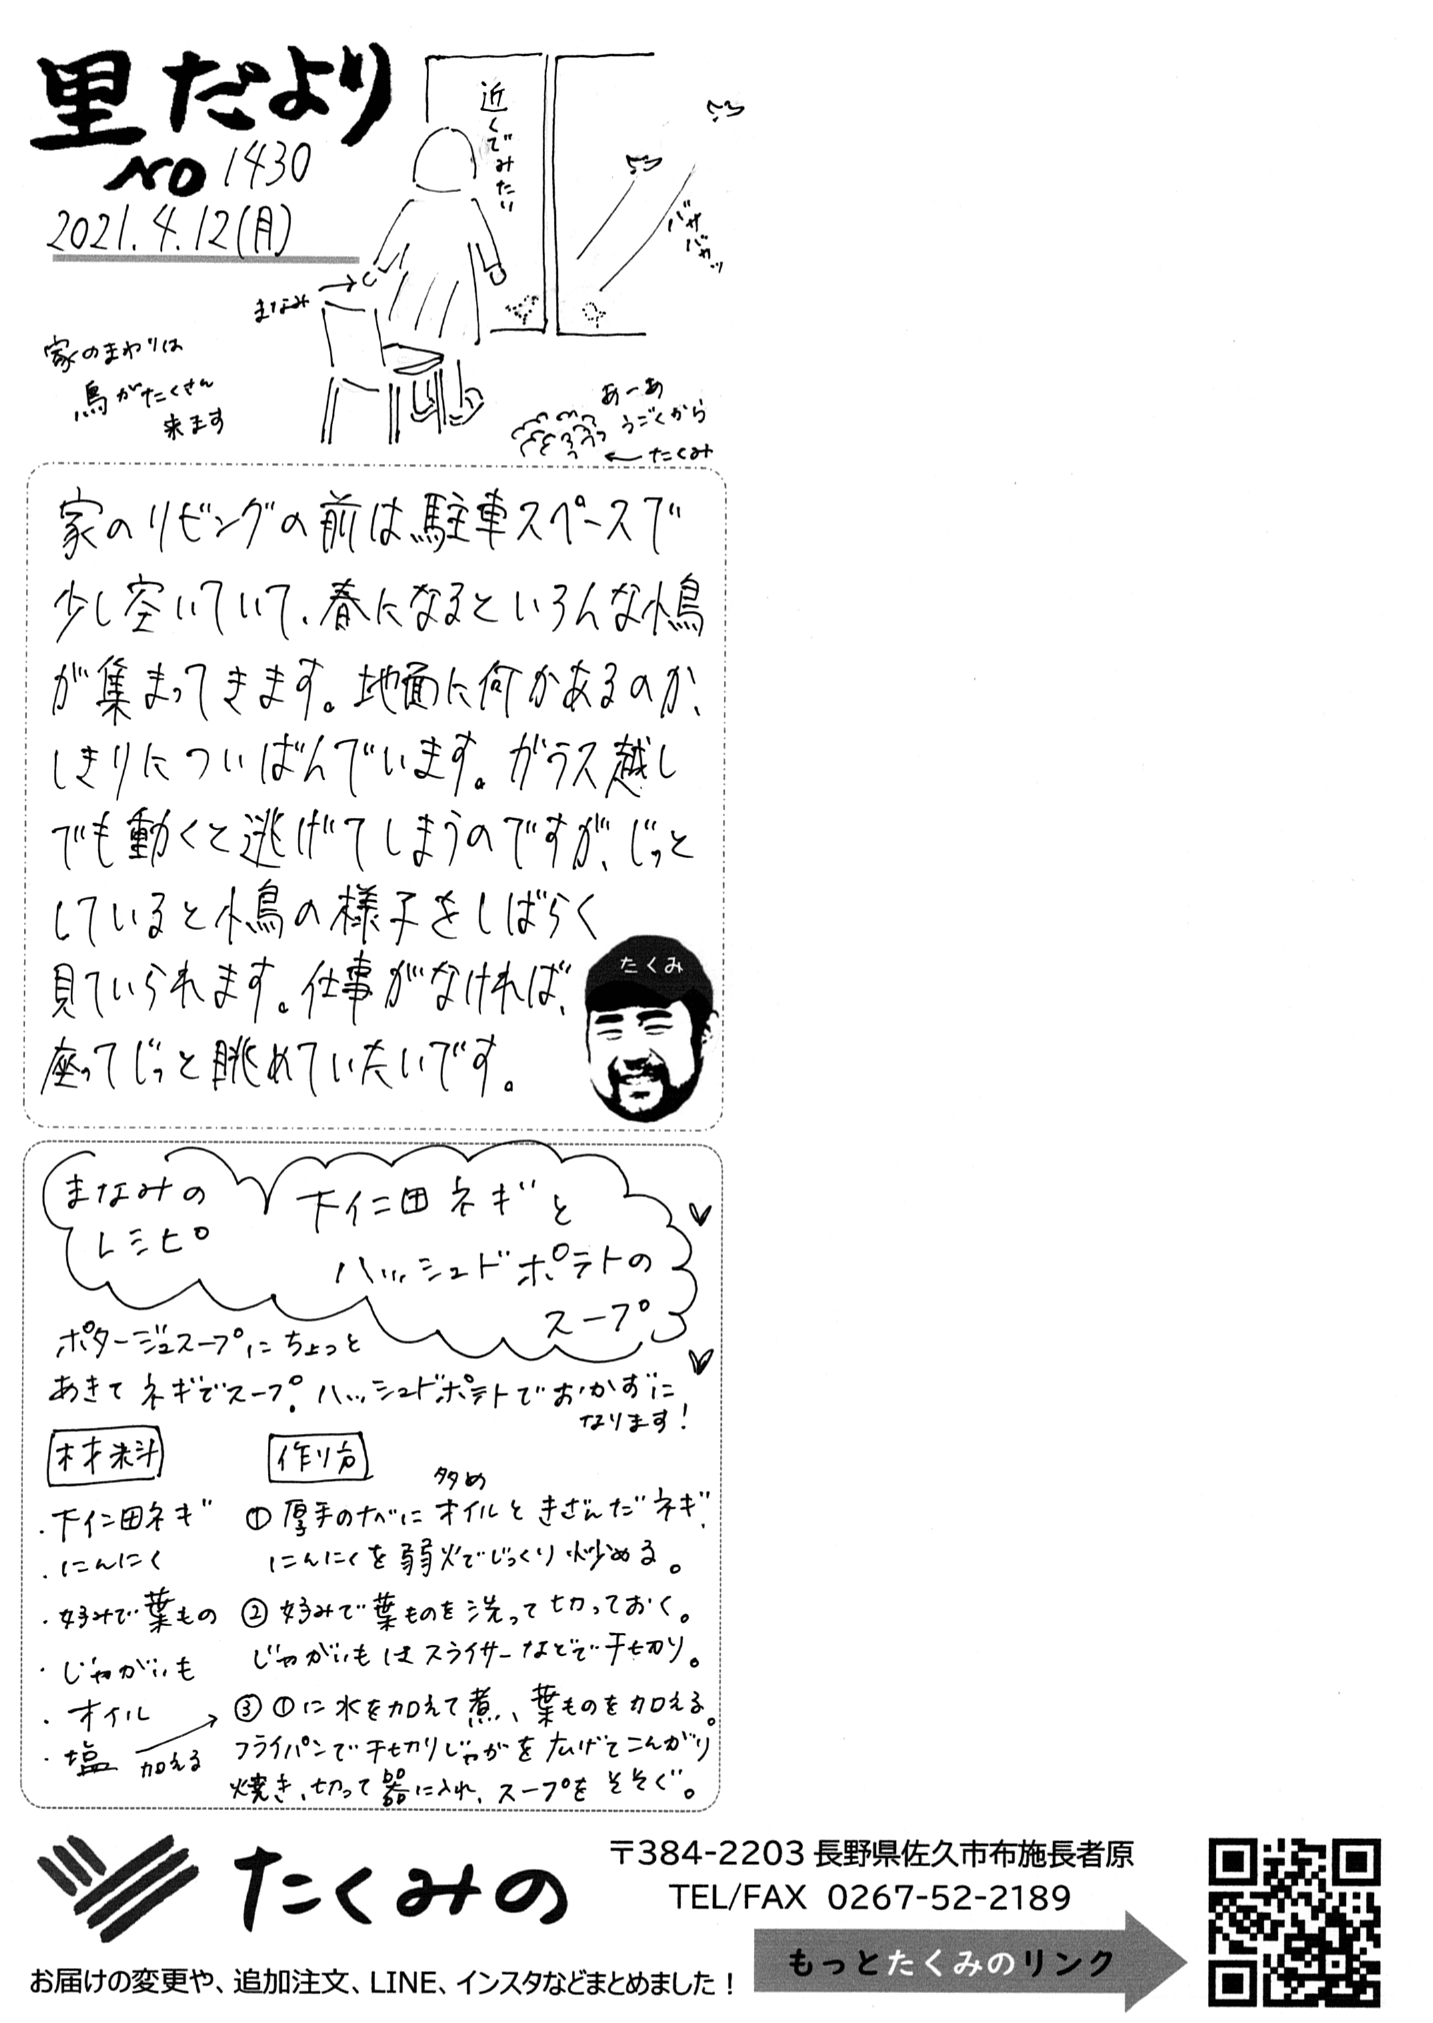 里だより
NO 1430
2021.4.12(月)
近くでみたい
バサバサッ
まなみ
家のまわりは
鳥がたくさん
来ます
あーあ
うごくから
たくみ
家のリビングの前は駐車スペースで
少し空いていて、春になるといろんな小鳥
が集まってきます。地面に何かあるのか、
しきりについばんでいます。ガラス越し
でも動くと逃げてしまうのですが、じっと
していると小鳥の様子をしばらく
見ていられます。仕事がなければ、
座ってじっと眺めていたいです。
たくみ
まなみの
レシピ
下仁田ネギと
ハッシュドポテトの
スープ
ポタージュスープにちょっと
あきて ネギでスープ。ハッシュドポテトでおかずに
なります!
材料
・下仁田ネギ
・にんにく
・好みで葉もの
・じゃがいも
・オイル
・塩
加える
作り方
多め
① 厚手のナベにオイルときざんだネギ、
にんにくを弱火でじっくり炒める。
② 好みで葉ものを洗って切っておく。
じゃがいもはスライサーなどで千切り。
③ ①に水を加えて煮、葉ものを加える。
フライパンで千切りじゃがを広げてこんがり
焼き、切って器に入れ、スープをそそぐ。
たくみの
〒384-2203 長野県佐久市布施長者原
TEL/FAX 0267-52-2189
もっとたくみのリンク
お届けの変更や、追加注文、LINE、インスタなどまとめました！